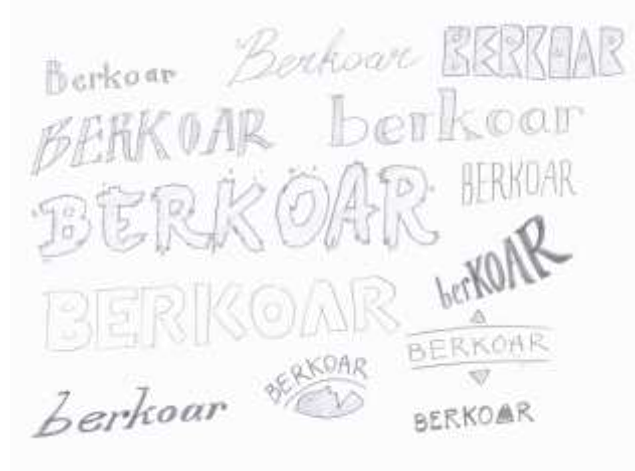 Berkoar Berkoar BERKOAR
BERKOAR berkoar
BERKOAR BERKOAR
berKOAR
BERKOAR
BERKOAR
berkoar BERKOAR
BERKOAR